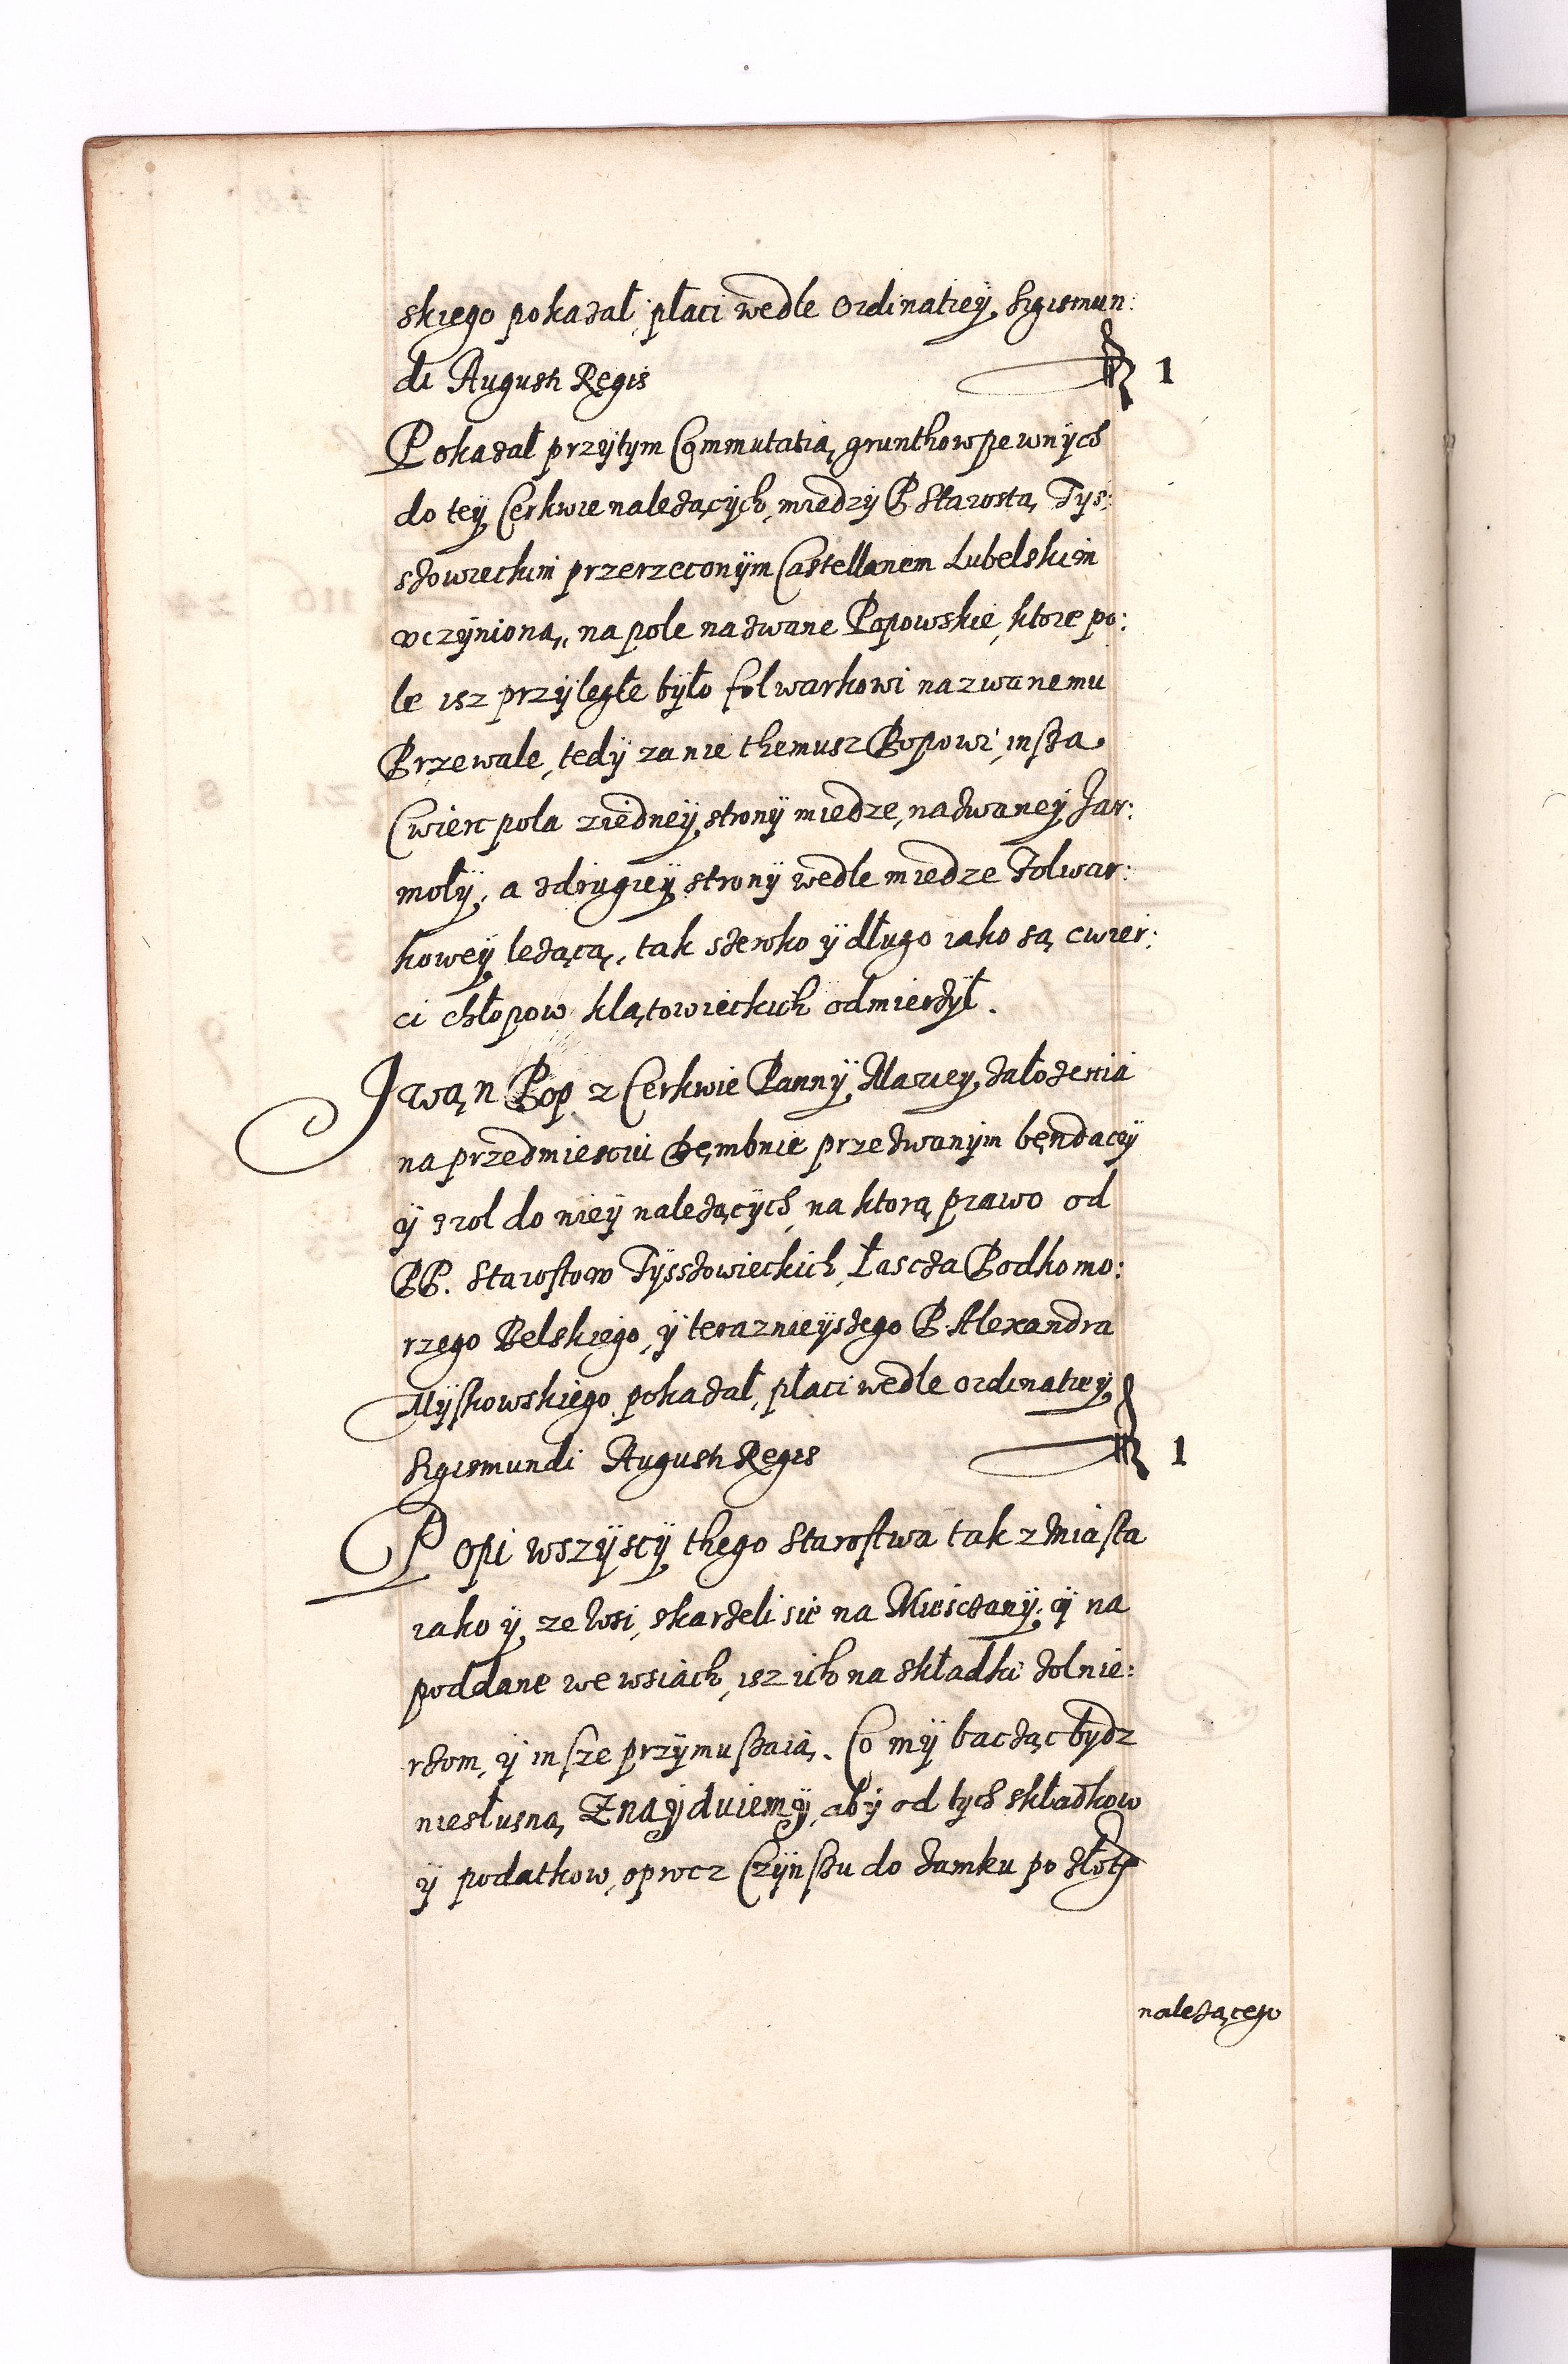 skiego pokazał, płaci wedle Ordinatiey Sigismun:
di Augusti Regis fl 1
Pokazał przytym Commutatią grunthow pewnych
do tey Cerkwie należących, miedzy P. Starostą Tys:
zowieckim przerzeconÿm Castellanem Lubelskim
vczÿnioną, na pole nazwane Popowskie, ktore po:
le isz przÿległe bÿło folwarkowi nazwanemu
Przewale, tedÿ za nie themusz Popowi, inszą
Cwierc pola ziedneÿ stronÿ miedze, nazwaneÿ Jar:
mołÿ, a zdrugieÿ stronÿ wedle miedze Folwar:
koweÿ lezącą, tak szeroko ÿ długo iako są cwier:
ci chłopow klątowieckich odmierzÿł.
Iwan Pop z Cerkwie Pannÿ Mariey załozenia
na przedmiesciu Dęmbnie przezwanÿm bęndaceÿ
ÿ z rol do nieÿ należącÿch, na ktorą prawo od
PP. Starostow Tÿszowieckich, Łascza Podkomo:
rzego Belskiego, ÿ teraznieÿszego P. Alexandra
Mÿszkowskiego pokazał, płaci wedle Ordinatieÿ
Sigismundi Augusti Regis fl 1
Popi wszÿscÿ thego Starostwa tak z Miasta
iako ÿ ze Wsi, skarzeli sie na Miesczanÿ, ÿ na
poddane we wsiach, isz ich na składki zolnie:
rzom, ÿ insze przÿmuszaią. Co mÿ bacząc bÿdz
niesłuszną, Znaÿduiemÿ, abÿ od tych składkow
ÿ podatkow, oprocz Czÿnszu do Zamku po złotÿ
należącego